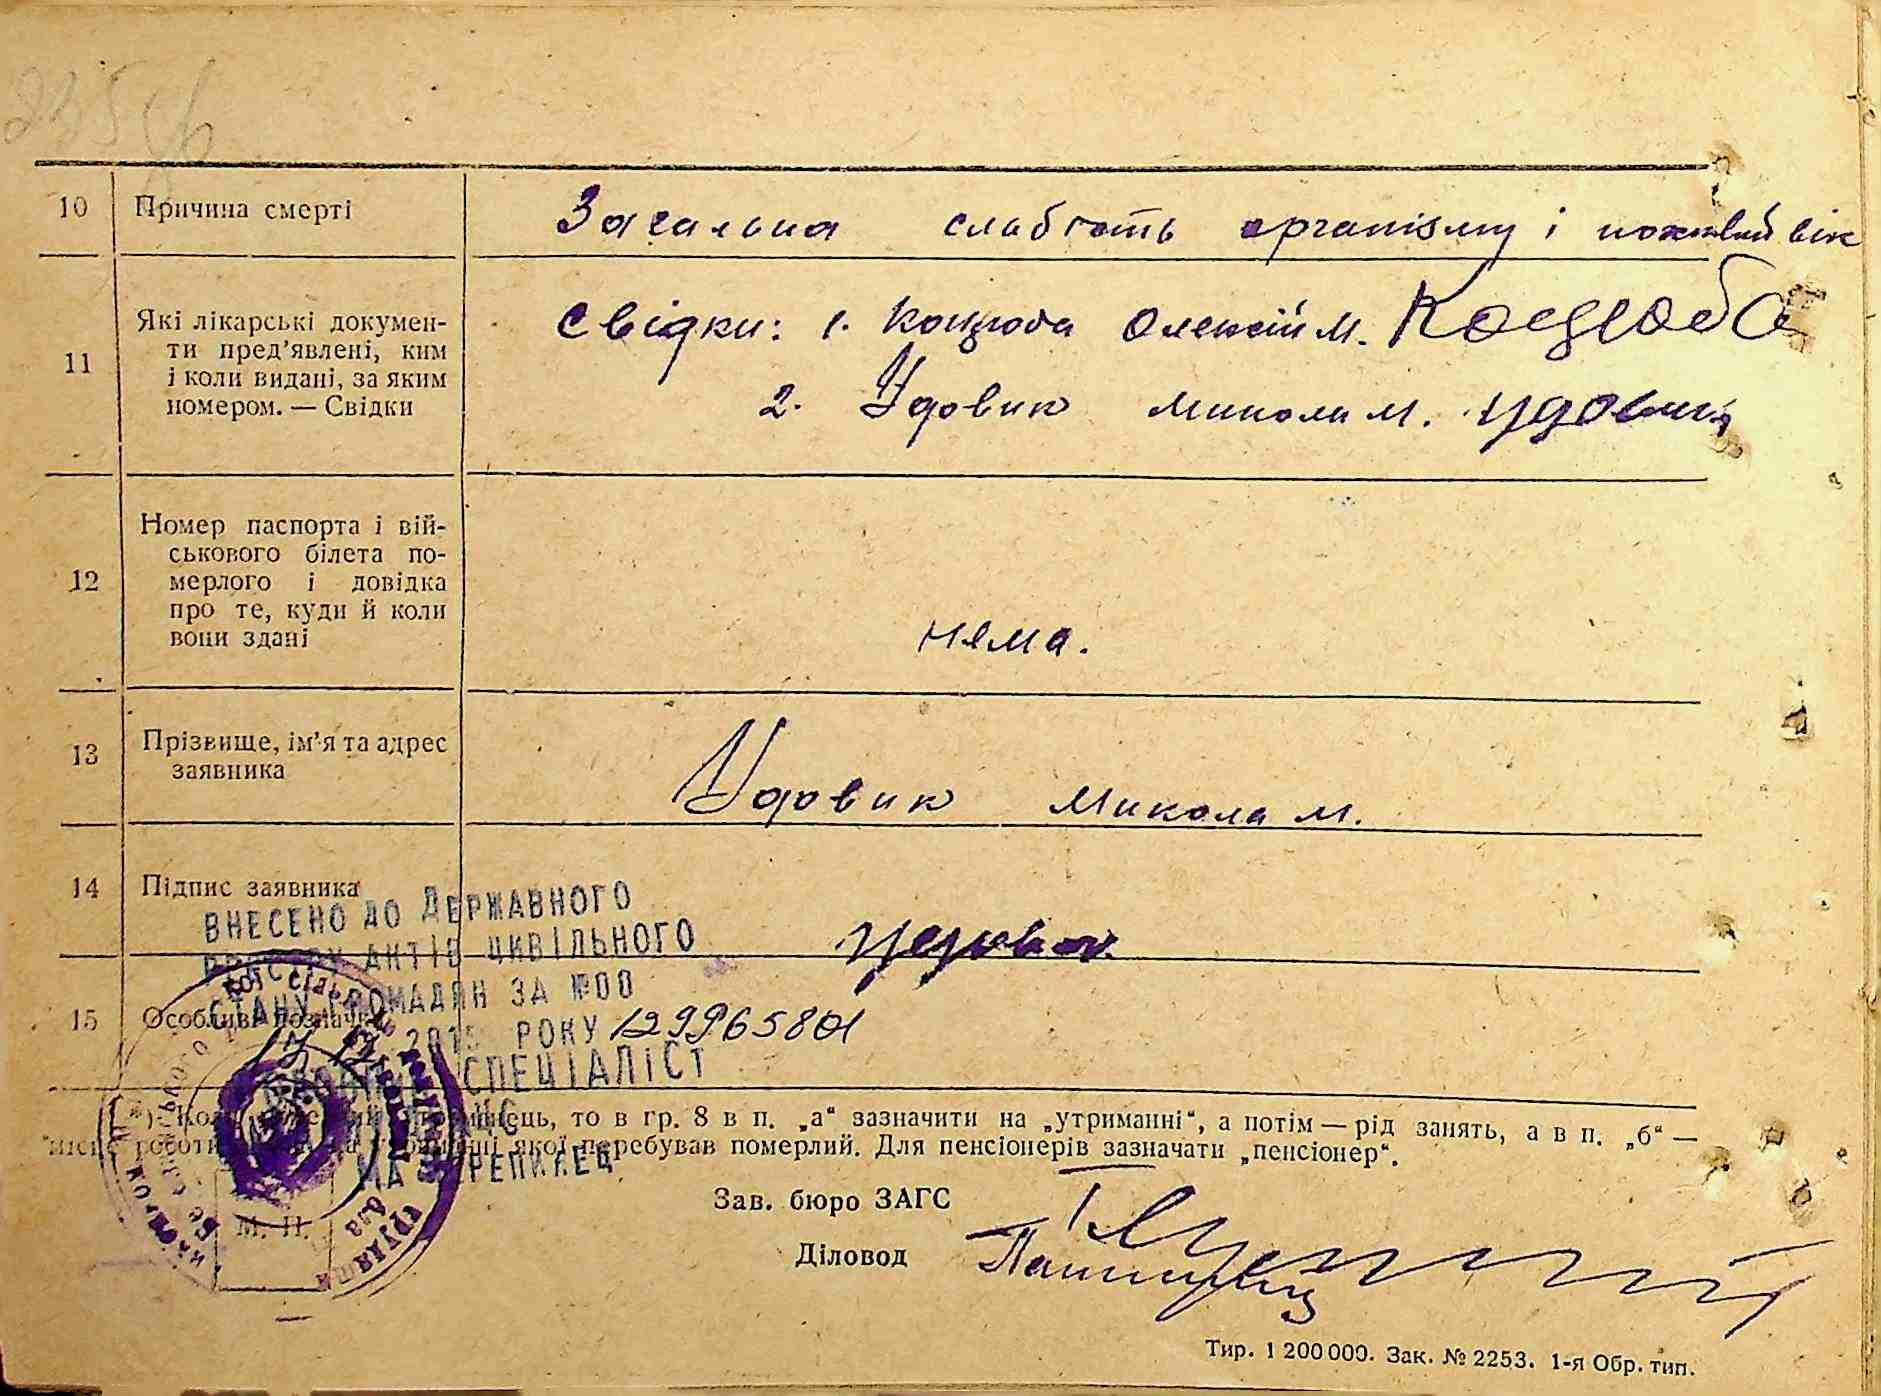 10 Причина смерті Загальна слабість організму і похилий вік
11 Які лікарські докумен-
ти пред'явлені, ким
і коли видані, за яким
номером. — Свідки
Свідки: 1. Коцюба Олексій М. Коцюба
2. Удовик Микола М. Удовик
12 Номер паспорта і вій-
ськового білета по-
мерлого і довідка
про те, куди й коли
вони здані
нема.
13 Прізвище, ім'я та адрес
заявника
Удовик Микола М.
14 Підпис заявника
ВНЕСЕНО ДО ДЕРЖАВНОГО
РЕЄСТРУ АКТІВ ЦИВІЛЬНОГО
СТАНУ ГРОМАДЯН ЗА №00
15 Особливі позначки
РОКУ 129965801
СПЕЦІАЛІСТ
то в гр. 8 в п. „а“ зазначити на „утриманні“, а потім — рід занять, а в п. „б“ —
місце роботи якої перебував померлий. Для пенсіонерів зазначати „пенсіонер“.
М. П.
Зав. бюро ЗАГС
Діловод
Тир. 1 200 000. Зак. № 2253. 1-я Обр. тип.